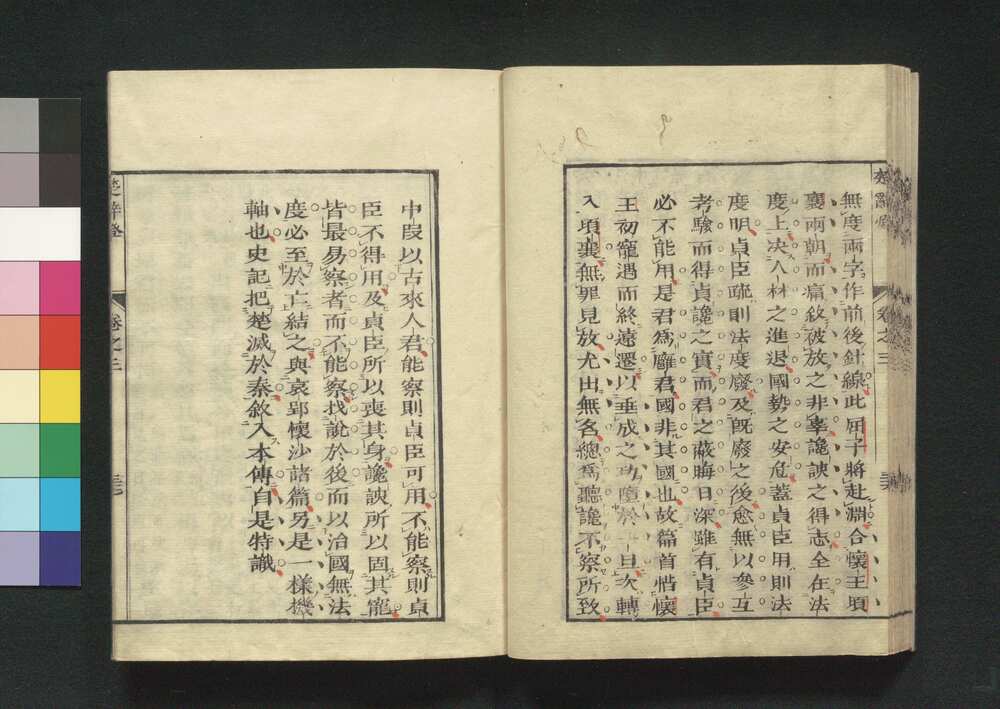 楚辭燈
卷之三
無度兩字作前後針線此屈子將赴淵合懷王頃
襄兩朝而痛敘被放之非辜讒諛之得志全在法
度上决人材之進退國勢之安危蓋貞臣用則法
度明貞臣疏則法度廢及旣廢之後愈無以參互
考驗而得貞讒之實而君之蔽晦日深雖有貞臣
必不能用是君爲廱君國非其國也故篇首惜懷
王初寵遇而終遠遷以垂成之功墮於一旦次轉
入頃襄無罪見放尤出無名總爲聽讒不察所致
中段以古來人君能察則貞臣可用不能察則貞
臣不得用及貞臣所以喪其身讒諛所以固其寵
皆最易察者而不能察找說於後而以治國無法
度必至於亡結之與哀郢懷沙諸篇另是一樣機
軸也史記把楚滅於秦敘入本傳自是特識
楚辭燈
卷之三